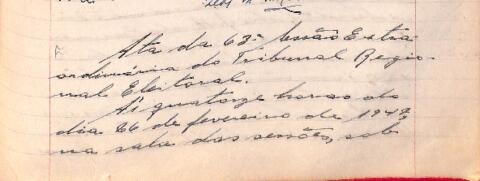 Ata da 63ª Sessão Extra
ordinária do Tribunal Regio-
nal Eleitoral.
Às quatorze horas do
dia 26 de fevereiro de 1947,
na sala das sessões, sob